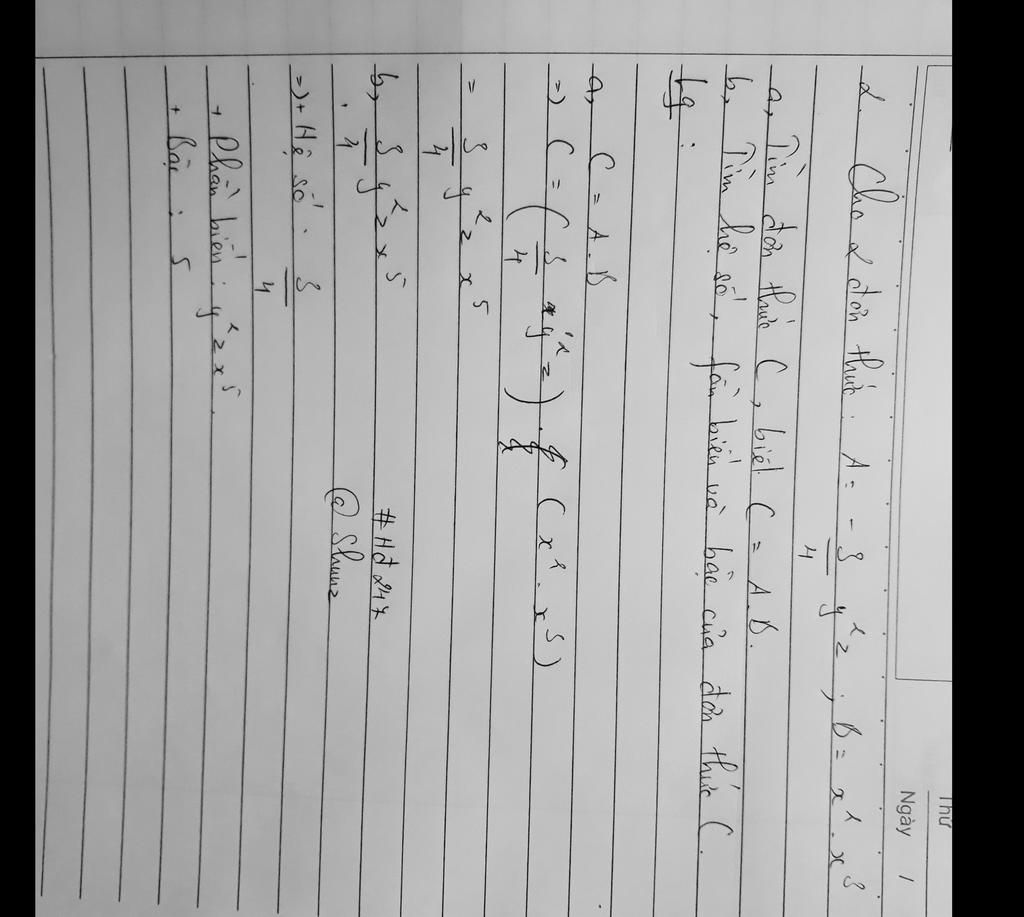 Thứ
Ngày /
2. Cho 2 đơn thức. A = - 3/4 y²z ; B = x². x³
a, Tìm đơn thức C, biết C = A.B.
b, Tìm hệ số, fần biến và bậc của đơn thức C.
Lg :
a, C = A.B
=) C = ( 3/4 y²z ) . ( x² . x³ )
= 3/4 y²z x⁵
b, 3/4 y²z x⁵
#Hđ247
@Shunz
=)+ Hệ số : 3/4
+ Phần biến : y²z x⁵.
+ Bậc : 5